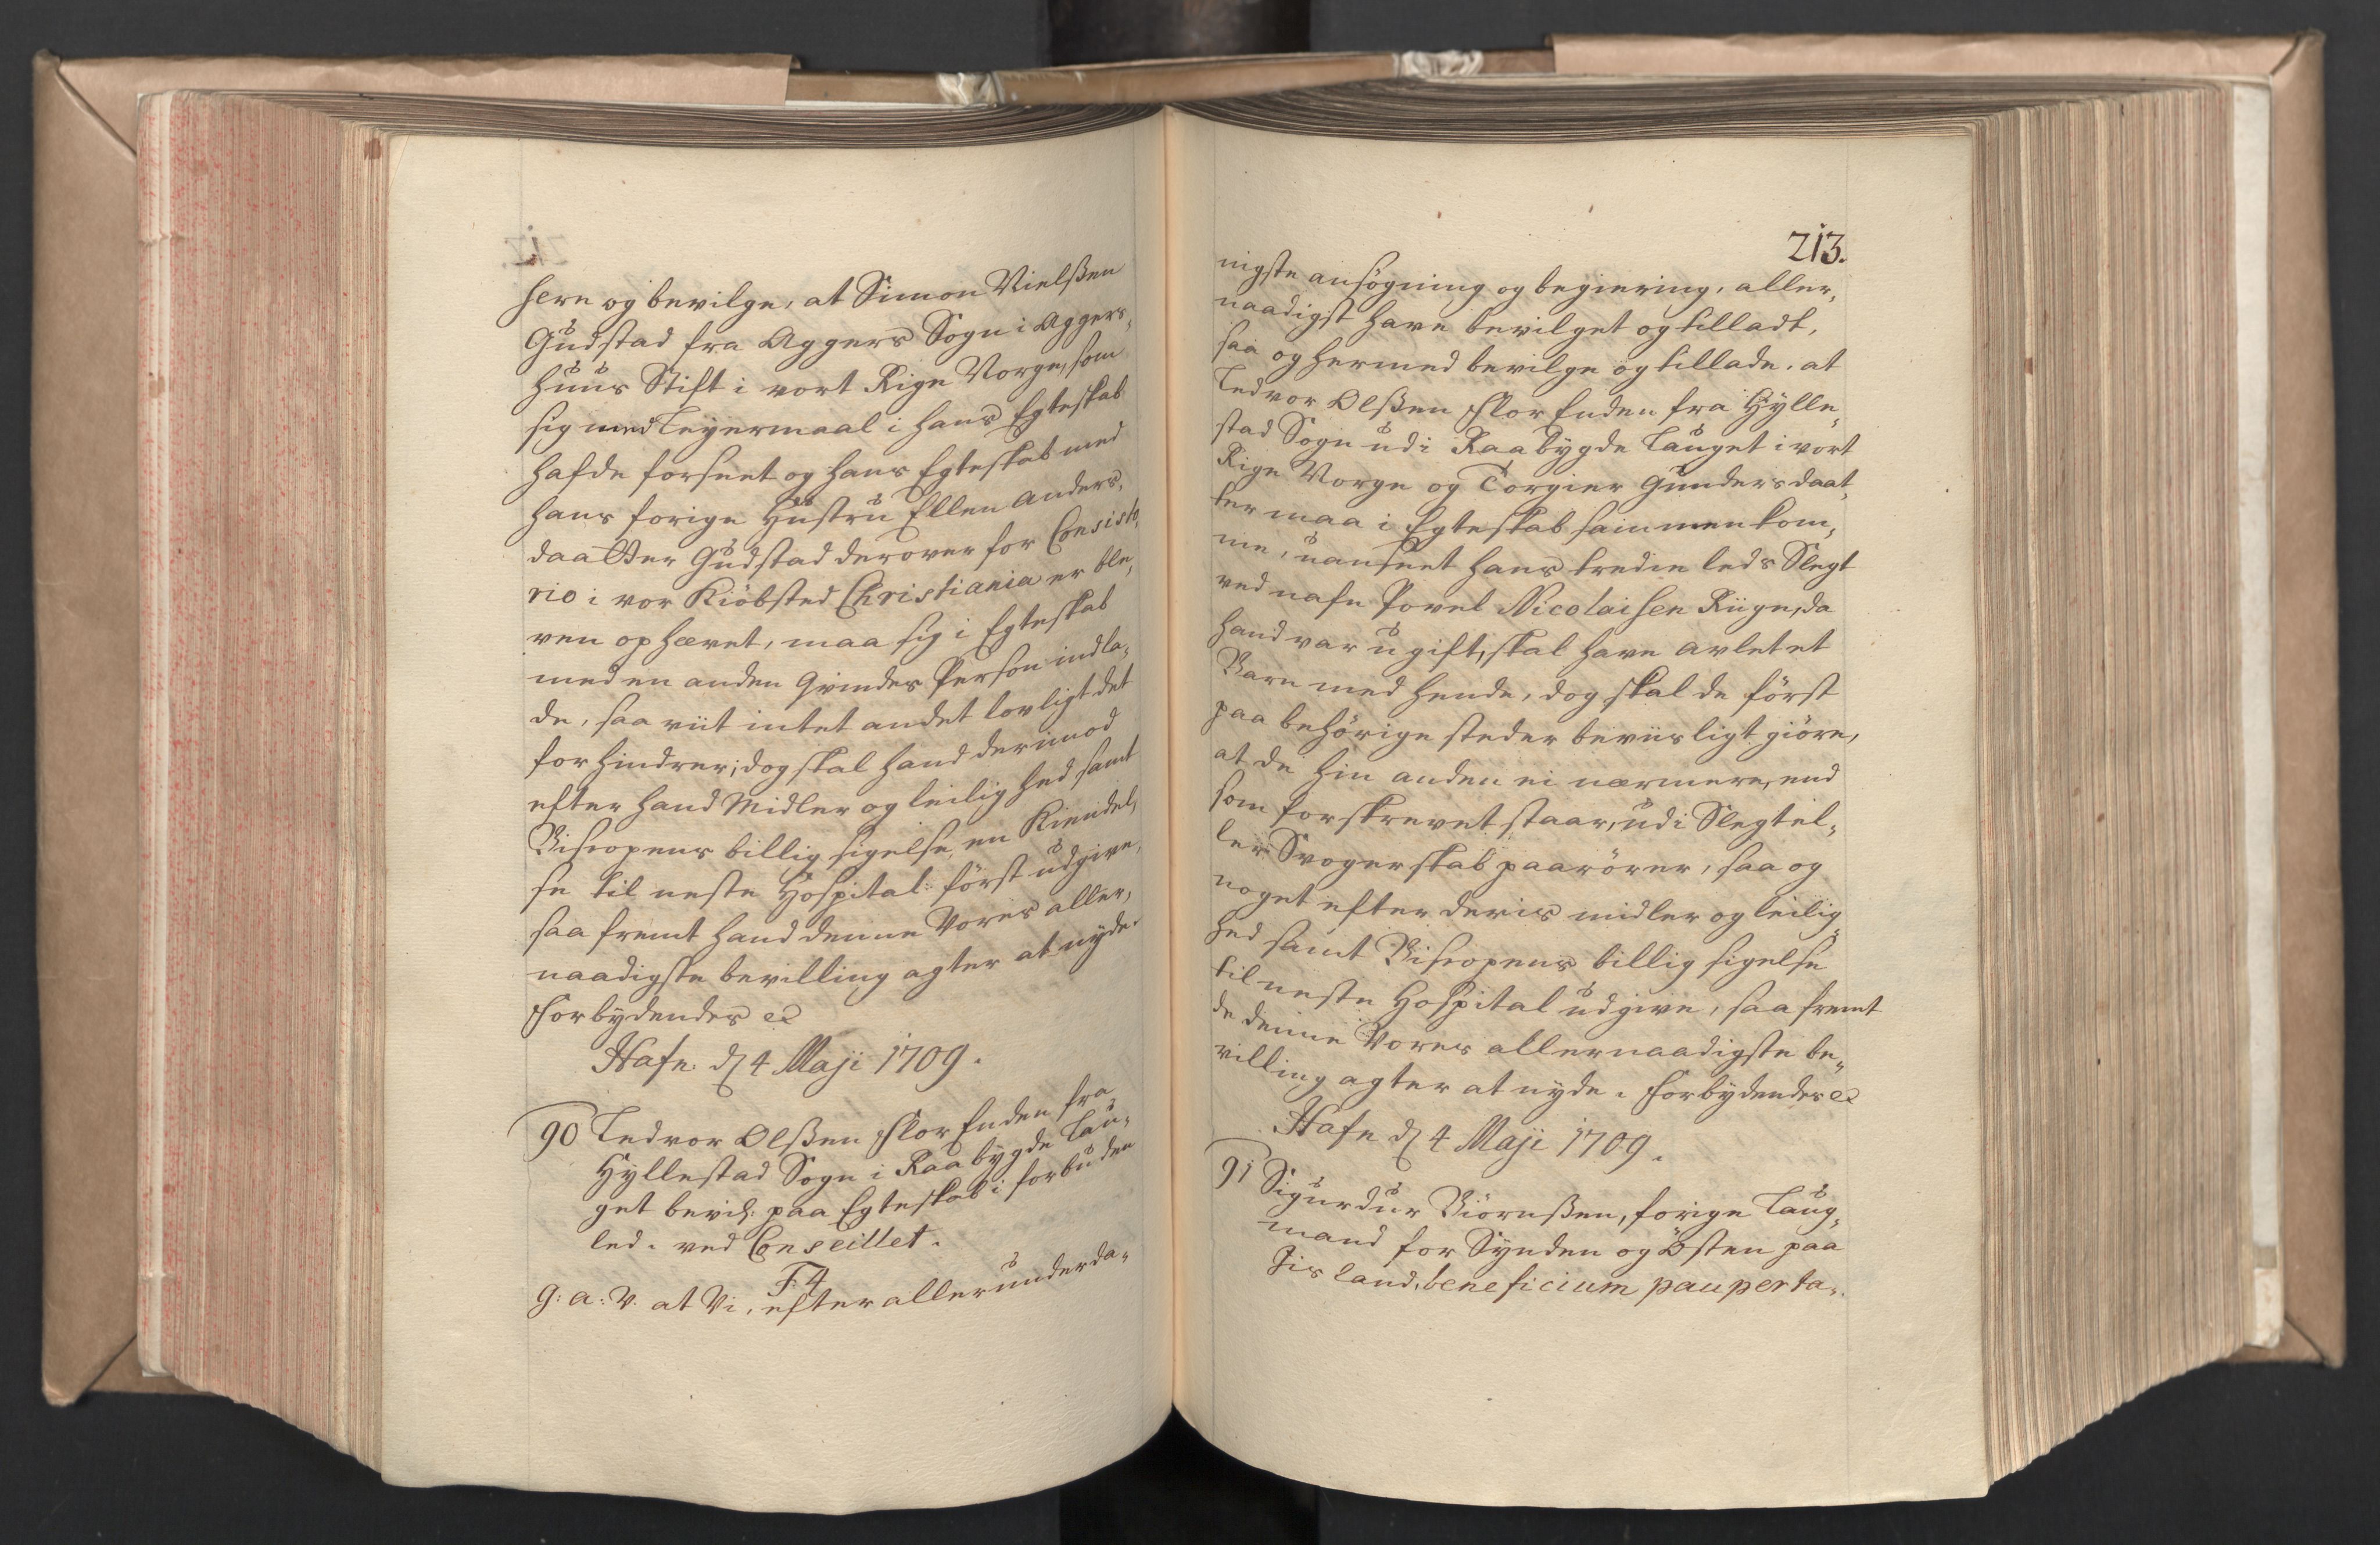 hern og bevilge, at Simon Nielßen
Gudstad fra Aggers Sogn i Aggers-
huus Stift i vort Rige Norge, som
sig med Leyermaal i hans Egteskab
hafde forseet og hans Egteskab med
hans forige Hustru Ellen Anders-
daatter Gudstad derover for Consisto-
rio i vor Kiöbsted Christiania er ble-
ven ophævet, maa sig i Egteskab
med en anden Qvindes Person indla-
de, saa viit intet andet lovligt det
forhindrer; dog skal hand derimod
efter hand Midler og leilighed samt
Biscopens billig sigelse, en Kiendel-
se til neste Hospital först udgive,
saa fremt hand denne Vores aller-
naadigste bevilling agter at nyde.
Forbydendes &c
Hafn. d 4 Maji 1709.
90 Tedvor Olßen Flor Enden fra
Hyllestad Sogn i Raabygde Lau-
get bevilg: paa Egteskab i forbuden
led. ved Conseillet.
F: 4
G: a: V: at Vi, efter allerunderda-
213.
nigste ansögning og begiering, aller-
naadigst have bevilget og tilladt,
saa og hermed bevilge og tillade, at
Tedvor Olßen Flor Enden fra Hylle-
stad Sogn udi Raabygde Lauget i vort
Rige Norge og Torgier Gundersdaat-
ter maa i Egteskab sammenkom-
me, uanseet hans tredie leds Slegt
ved nafn Povel Nicolaisen Riige, da
hand var ugift, skal have avlet et
Barn med hende, dog skal de först
paa behörige steder beviisligt giöre,
at de hin anden ei nærmere, end
som forskrevet staar, udi Slegt el-
ler Svogerskab paarörer, saa og
noget efter deris midler og leilig-
hed samt Biscopens billig sigelse
til neste Hospital udgive, saa fremt
de denne Vores allernaadigste be-
villing agter at nyde. Forbydendes &c
Hafn d 4 Maji 1709.
91 Sigurdur Biörnßen, forige Laug-
mand for Synden og Østen paa
Jisland, beneficium pauperta-